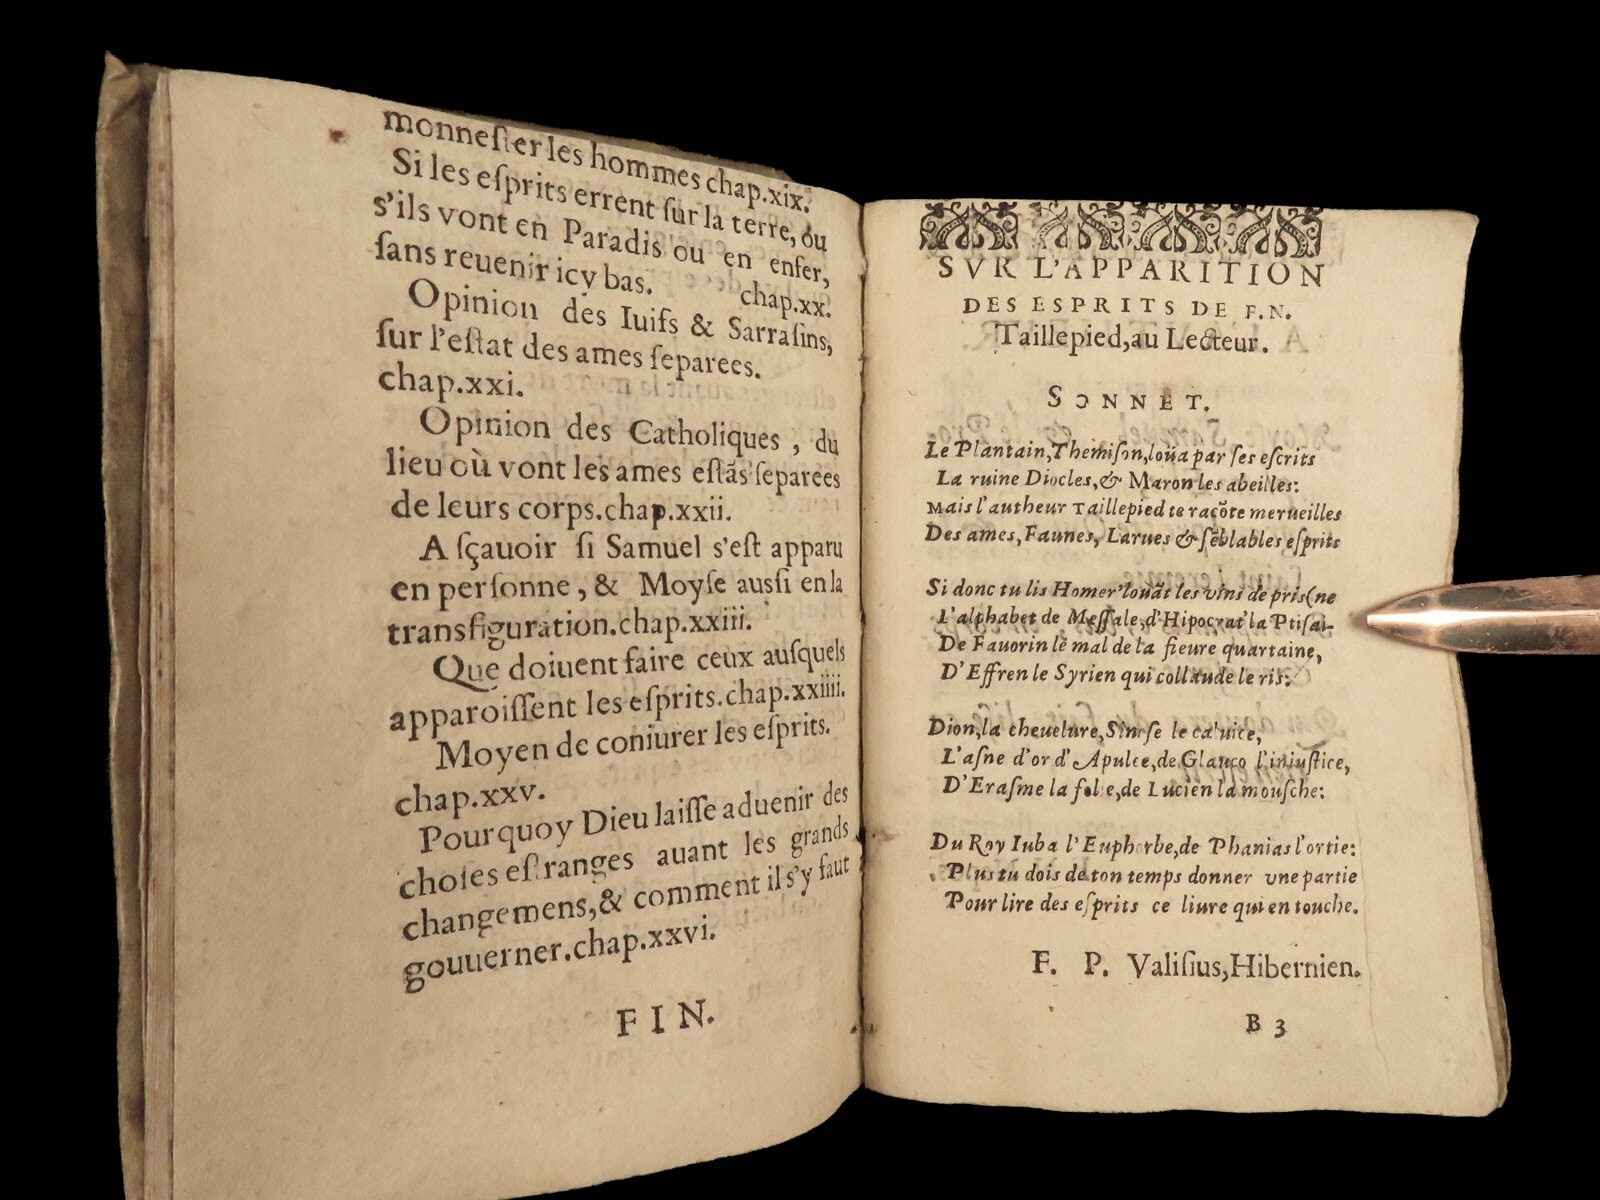 monneſter les hommes chap.xix.
Si les eſprits errent ſur la terre, ou
s'ils vont en Paradis ou en enfer,
ſans reuenir icy bas. chap.xx.
Opinion des Iuifs & Sarraſins,
ſur l'eſtat des ames ſeparees.
chap.xxi.
Opinion des Catholiques , du
lieu où vont les ames eſtãs ſeparees
de leurs corps.chap.xxii.
A ſçauoir ſi Samuel s'eſt apparu
en perſonne , & Moyſe auſſi en la
transfiguration.chap.xxiii.
Que doiuent faire ceux auſquels
apparoiſſent les eſprits.chap.xxiiii.
Moyen de coniurer les eſprits.
chap.xxv.
Pourquoy Dieu laiſſe aduenir des
choſes eſtranges auant les grands
changemens,& comment il s'y faut
gouuerner.chap.xxvi.
FIN.
SVR L'APPARITION
DES ESPRITS DE F.N.
Taillepied,au Lecteur.
SONNET.
Le Plantain,Themiſon,loüa par ſes eſcrits
La ruine Diocles,& Maron les abeilles:
Mais l'autheur Taillepied te racõte merueilles
Des ames, Faunes, Larues & ſẽblables eſprits
Si donc tu lis Homer' louãt les vins de pris (ne
L'alphabet de Meſſale,d'Hipocrat' la Ptiſai-
De Fauorin le mal de la fieure quartaine,
D'Effren le Syrien qui collaude le ris:
Dion,la cheuelure, Sineſe le caluice,
L'aſne d'or d'Apulee,de Glauco l'iniuſtice,
D'Eraſme la folie,de Lucien la mouſche:
Du Roy Iuba l'Euphorbe,de Phanias l'ortie:
Plus tu dois de ton temps donner vne partie
Pour lire des eſprits ce liure qui en touche.
F. P. Valiſius, Hibernien.
B 3